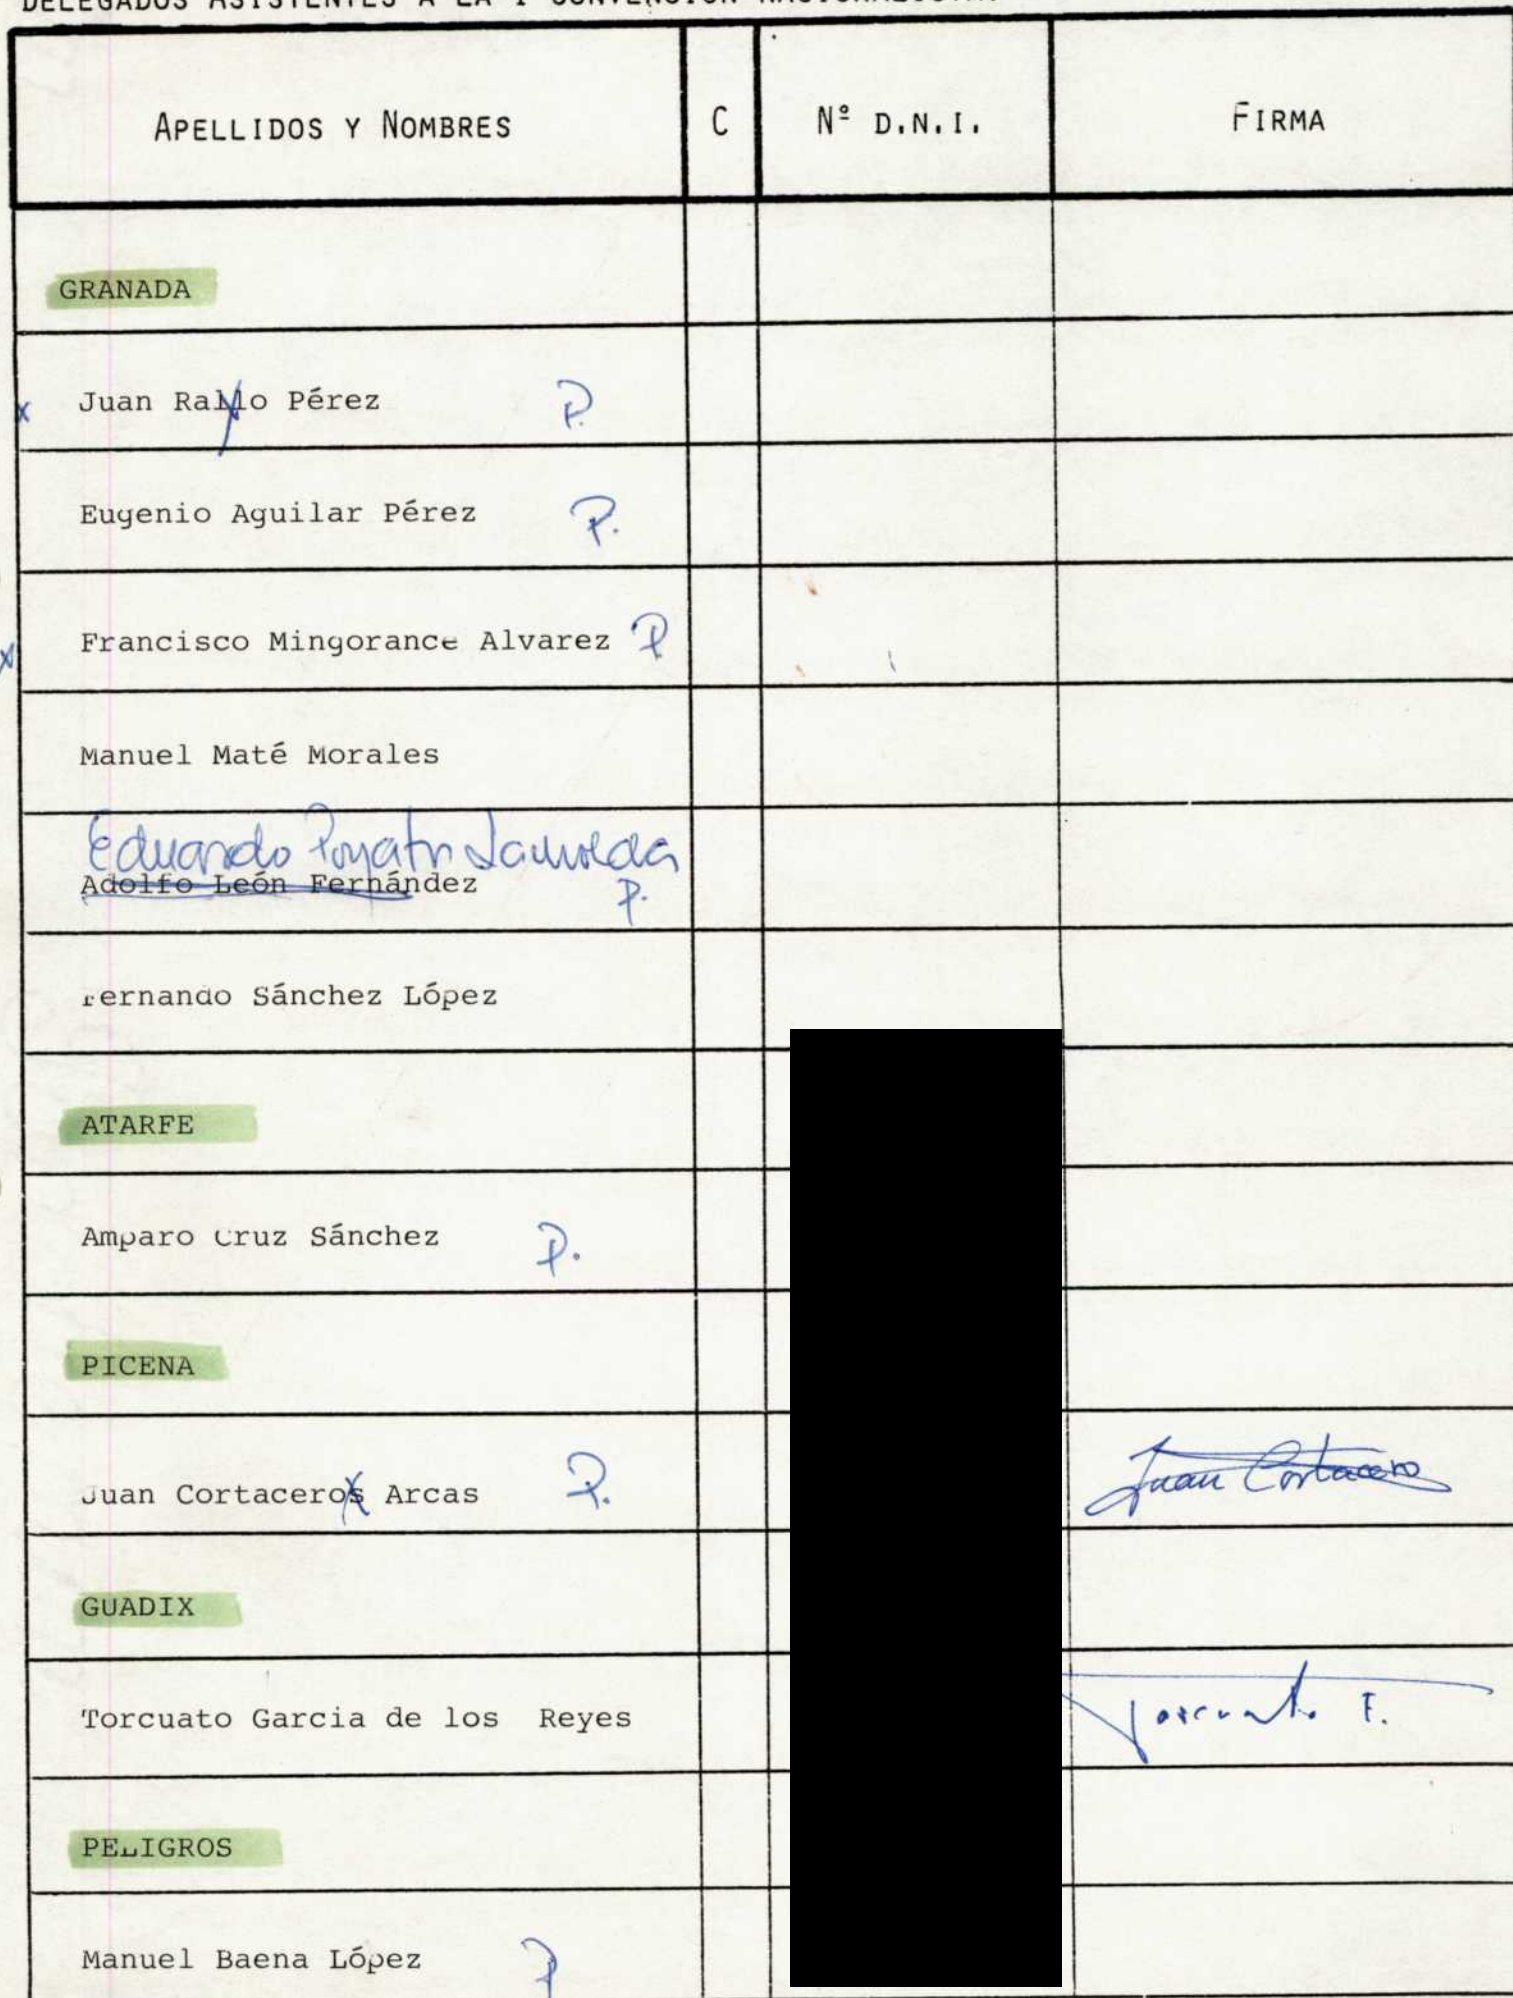 DELEGADOS ASISTENTES A LA I CONVENCIÓN NACIONALISTA
APELLIDOS Y NOMBRES C Nº D.N.I. FIRMA
GRANADA
x Juan Rallo Pérez P.
Eugenio Aguilar Pérez P.
x Francisco Mingorance Alvarez P
Manuel Maté Morales
Eduardo
Adolfo León Fernández P.
Fernando Sánchez López
ATARFE
Amparo Cruz Sánchez P.
PICENA
Juan Cortaceros Arcas P. Juan Cortacero
GUADIX
Torcuato Garcia de los Reyes Torcuato F.
PELIGROS
Manuel Baena López P